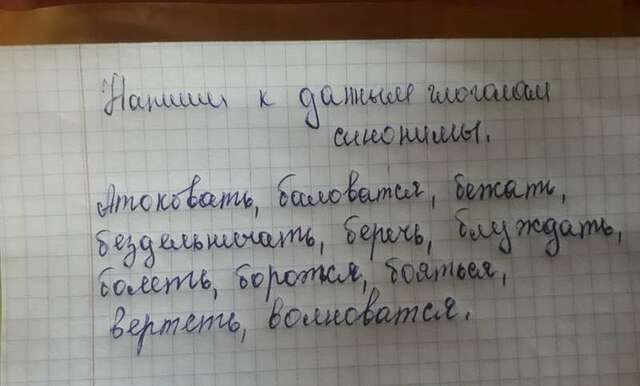 Напиши к данным глаголам
синонимы.
Атоковать, баловатся, бежать,
бездельничать, беречь, блуждать,
болеть, боротся, бояться,
вертеть, волноватся.